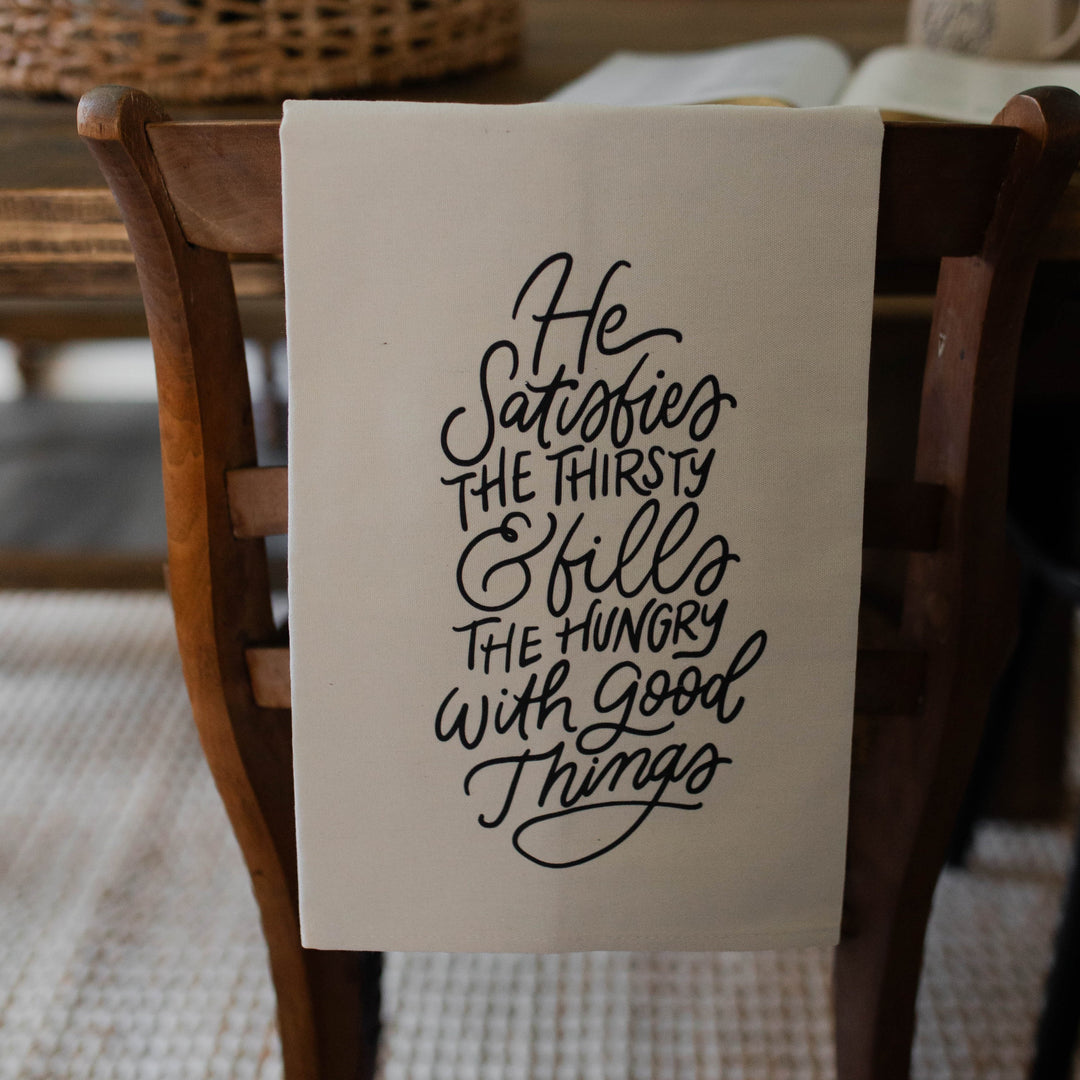 He
Satisfies
THE THIRSTY
& fills
THE HUNGRY
with Good
Things